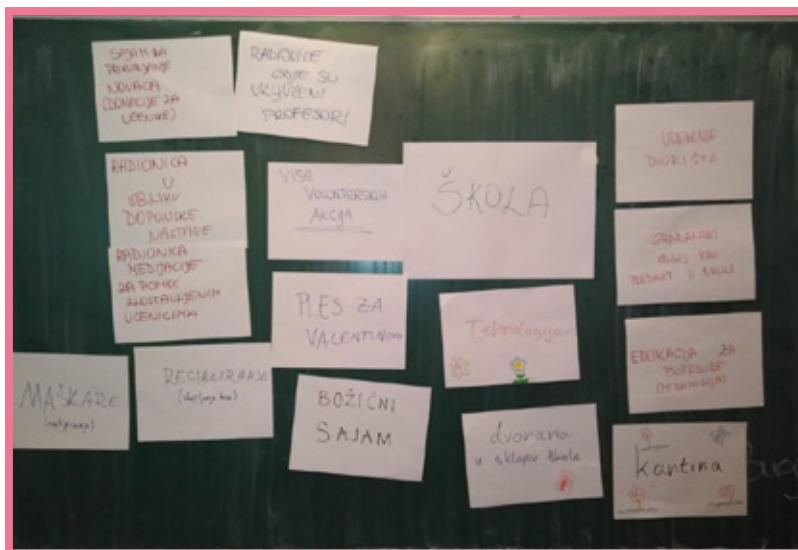 SAJAM ZA
PRIKUPLJANJE
NOVACA
(DONACIJE ZA
UČENIKE)
RADIONICE
GDJE SU
UKLJUČENI
PROFESORI
RADIONICA
U
OBLIKU
DOPUNSKE
NASTAVE
RADIONICA
MEDIJACIJE
ZA POMOĆ
ZLOSTAVLJENIM
UČENICIMA
VIŠE
VOLONTERSKIH
AKCIJA
ŠKOLA
UREĐENJE
DVORIŠTA
GRAĐANSKI
ODGOJ KAO
PREDMET U ŠKOLI
PLES ZA
VALENTINOVO
Tehnologija
EDUKACIJA ZA
PROFESORE
MAŠKARE
RECIKLIRANJE
BOŽIĆNI
SAJAM
dvorana
u sklopu škole
Kantina